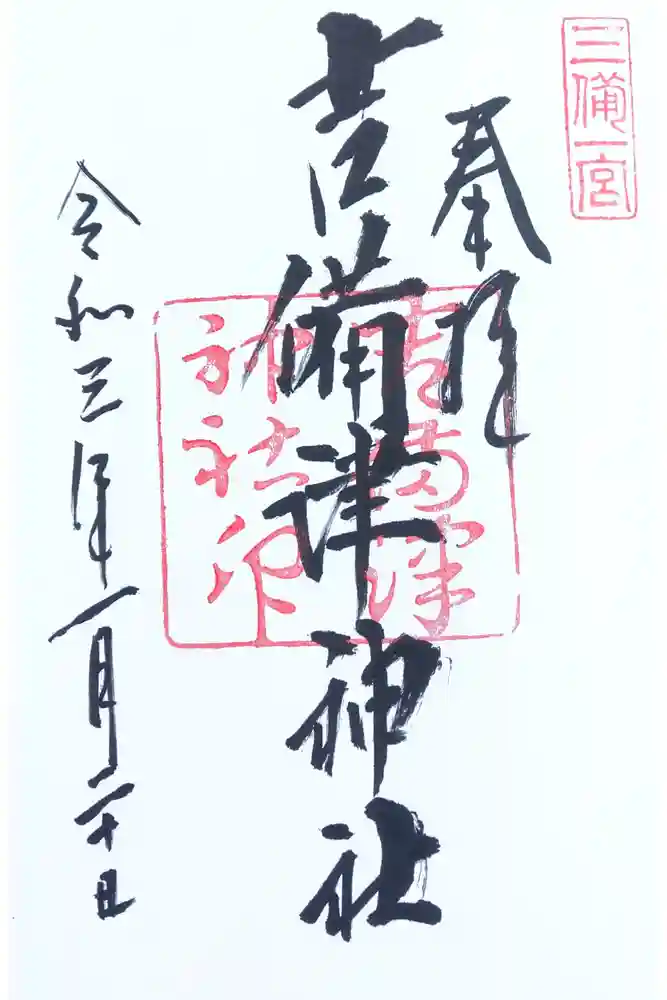 三備一宮
奉拝
吉備津神社
令和三年一月二十日